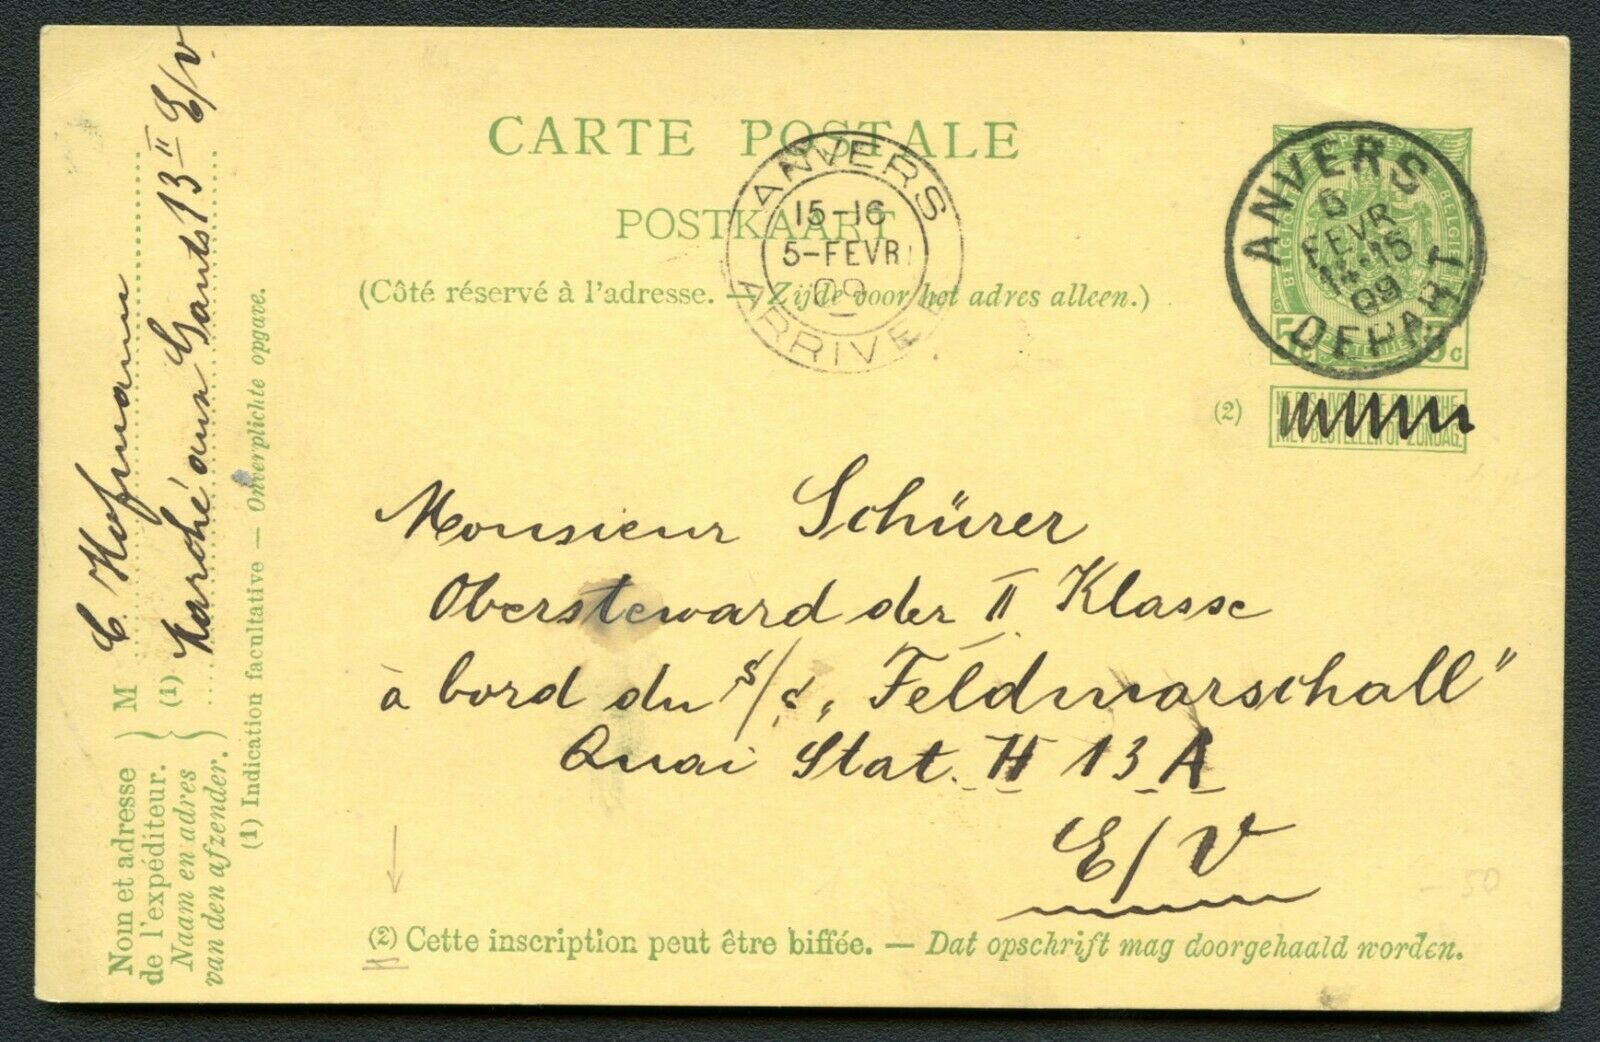 CARTE POSTALE
POSTKAART
(Côté réservé à l'adresse. — Zijde voor het adres alleen.)
ANVERS
15-16
5-FEVR
09
ARRIVEE
ANVERS
5
FEVR
14-15
09
DEPART
BELGIQUE
BELGIE
5c
5c
(2)
NE PAS LIVRER LE DIMANCHE.
NIET BESTELLEN OP ZONDAG.
Monsieur Schürer
Obersteward der II Klasse
à bord du s/s „Feldmarschall"
Quai Stat. H 13 A
E/V
(2) Cette inscription peut être biffée. — Dat opschrift mag doorgehaald worden.
50
Nom et adresse
de l'expéditeur.
Naam en adres
van den afzender.
M C Hofmann
(1) Marché aux Gants 13 II E/V.
(1) Indication facultative — Onverplichte opgave.